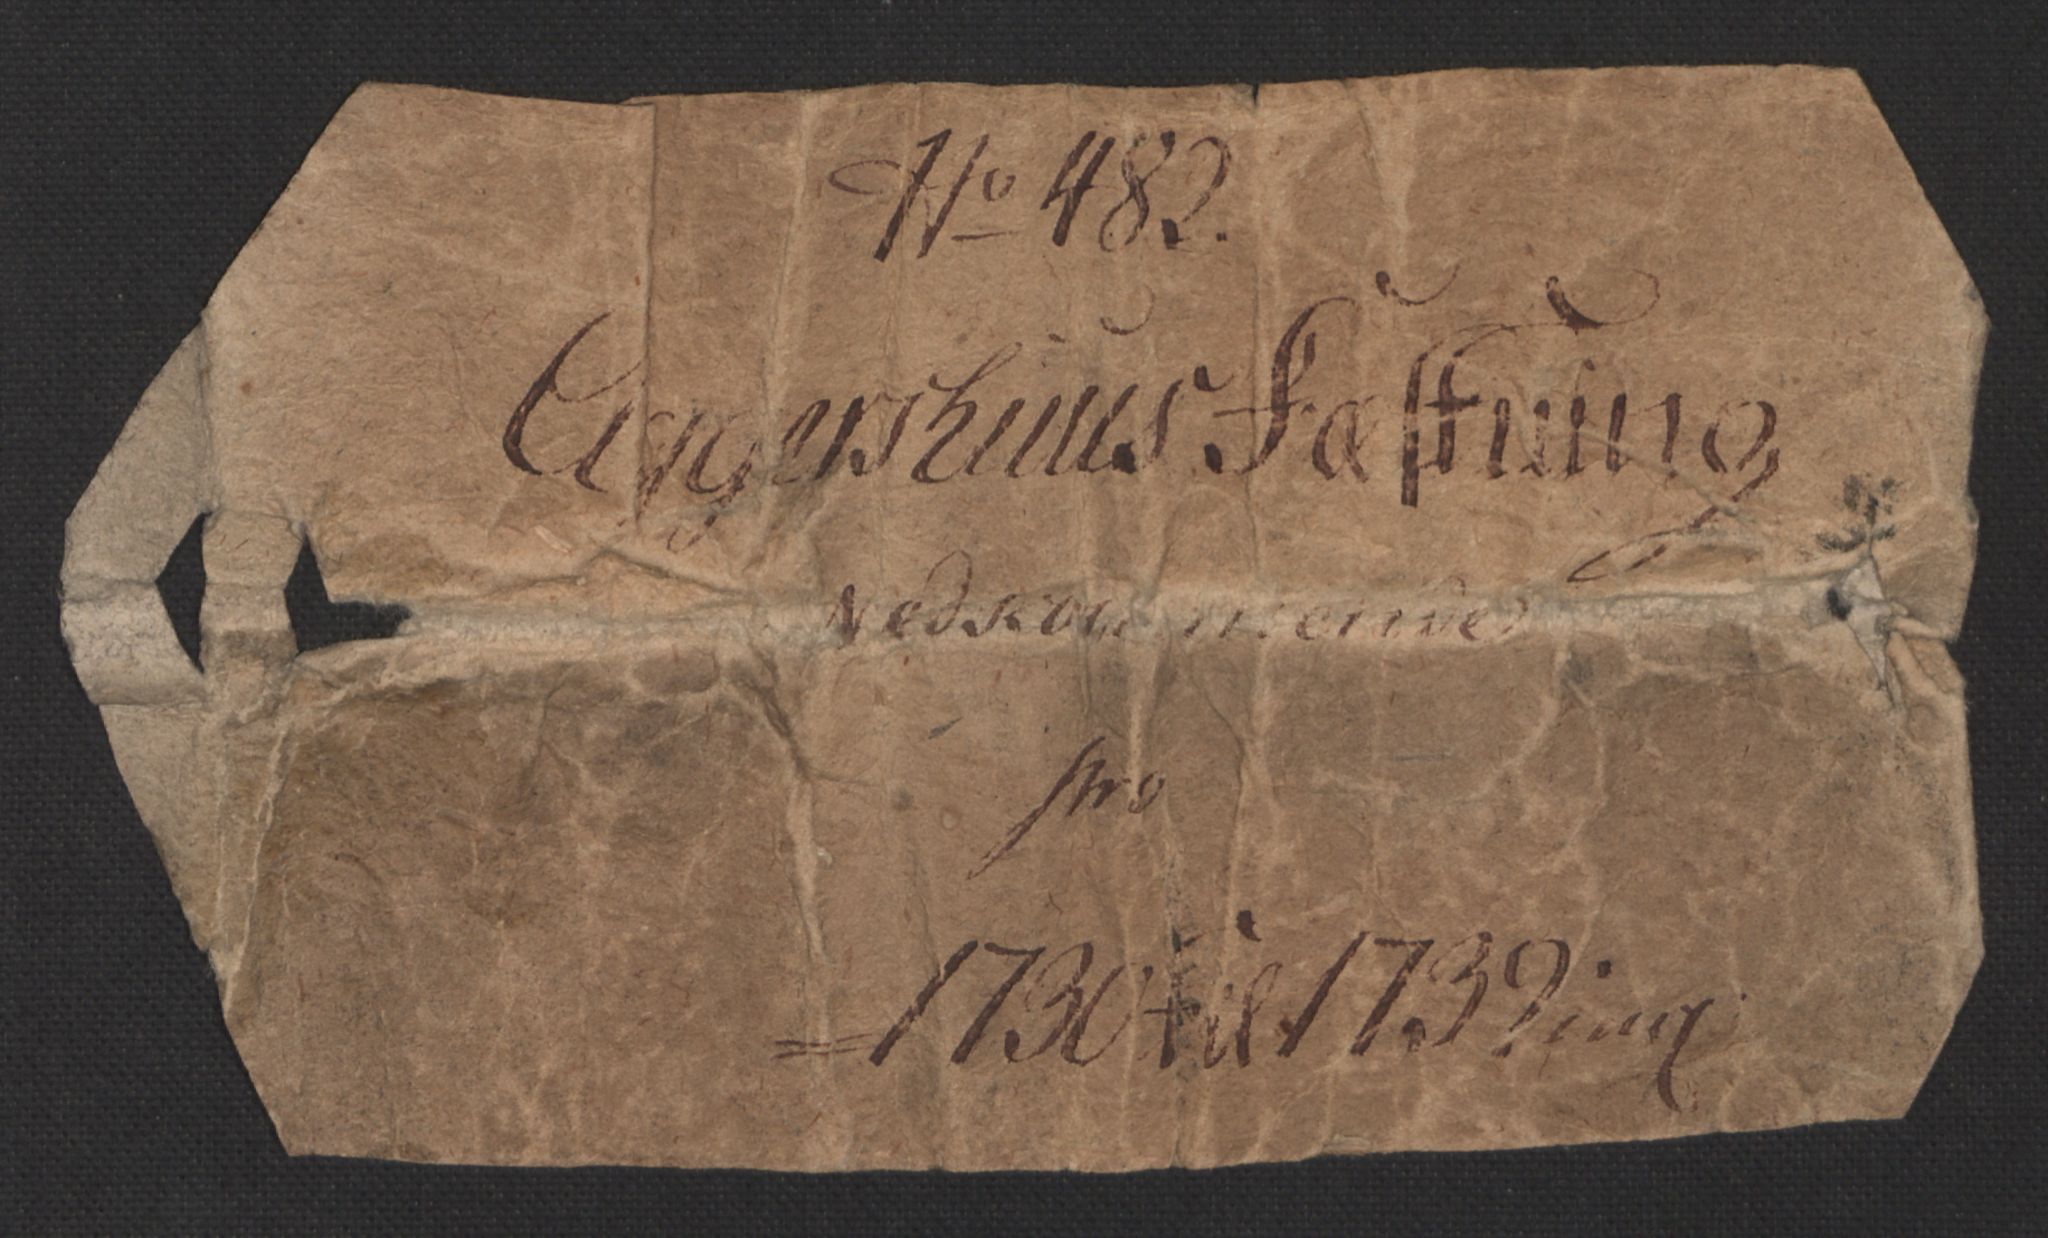 No 482.
Aggershuus Fæstning
Vedkommende
pro
1730 til 1739 inq